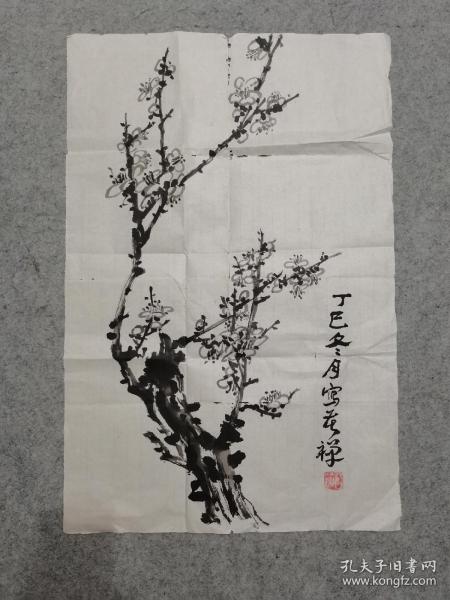 丁巳冬月写苦禅
孔夫子旧书网
www.kongfz.com